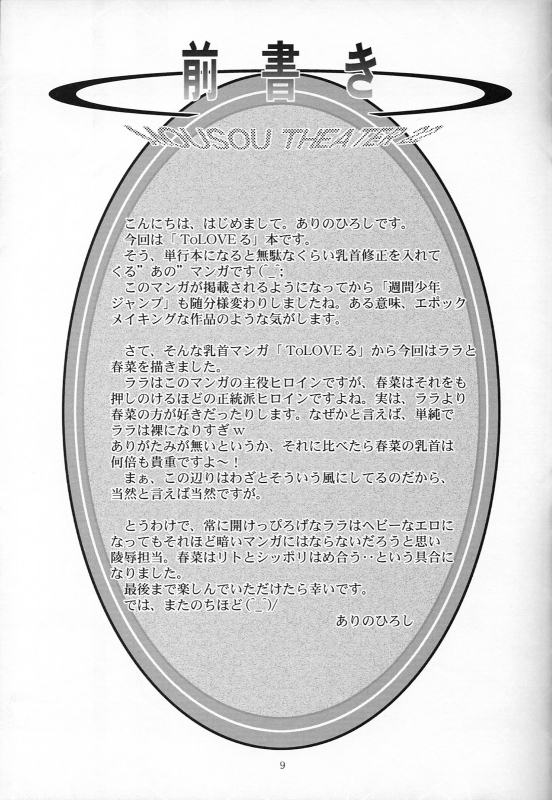 前書き
MOUSOU THEATER 21
こんにちは、はじめまして。ありのひろしです。
今回は「ToLOVEる」本です。
そう、単行本になると無駄なくらい乳首修正を入れて
くる”あの”マンガです(^_^;
このマンガが掲載されるようになってから「週間少年
ジャンプ」も随分様変わりしましたね。ある意味、エポック
メイキングな作品のような気がします。
さて、そんな乳首マンガ「ToLOVEる」から今回はララと
春菜を描きました。
ララはこのマンガの主役ヒロインですが、春菜はそれをも
押しのけるほどの正統派ヒロインですよね。実は、ララより
春菜の方が好きだったりします。なぜかと言えば、単純で
ララは裸になりすぎw
ありがたみが無いというか、それに比べたら春菜の乳首は
何倍も貴重ですよ～！
まぁ、この辺りはわざとそういう風にしてるのだから、
当然と言えば当然ですが。
とうわけで、常に開けっぴろげなララはヘビーなエロに
なってもそれほど暗いマンガにはならないだろうと思い
陵辱担当。春菜はリトとシッポリはめ合う‥という具合に
なりました。
最後まで楽しんでいただけたら幸いです。
では、またのちほど(^_^)/
ありのひろし
9